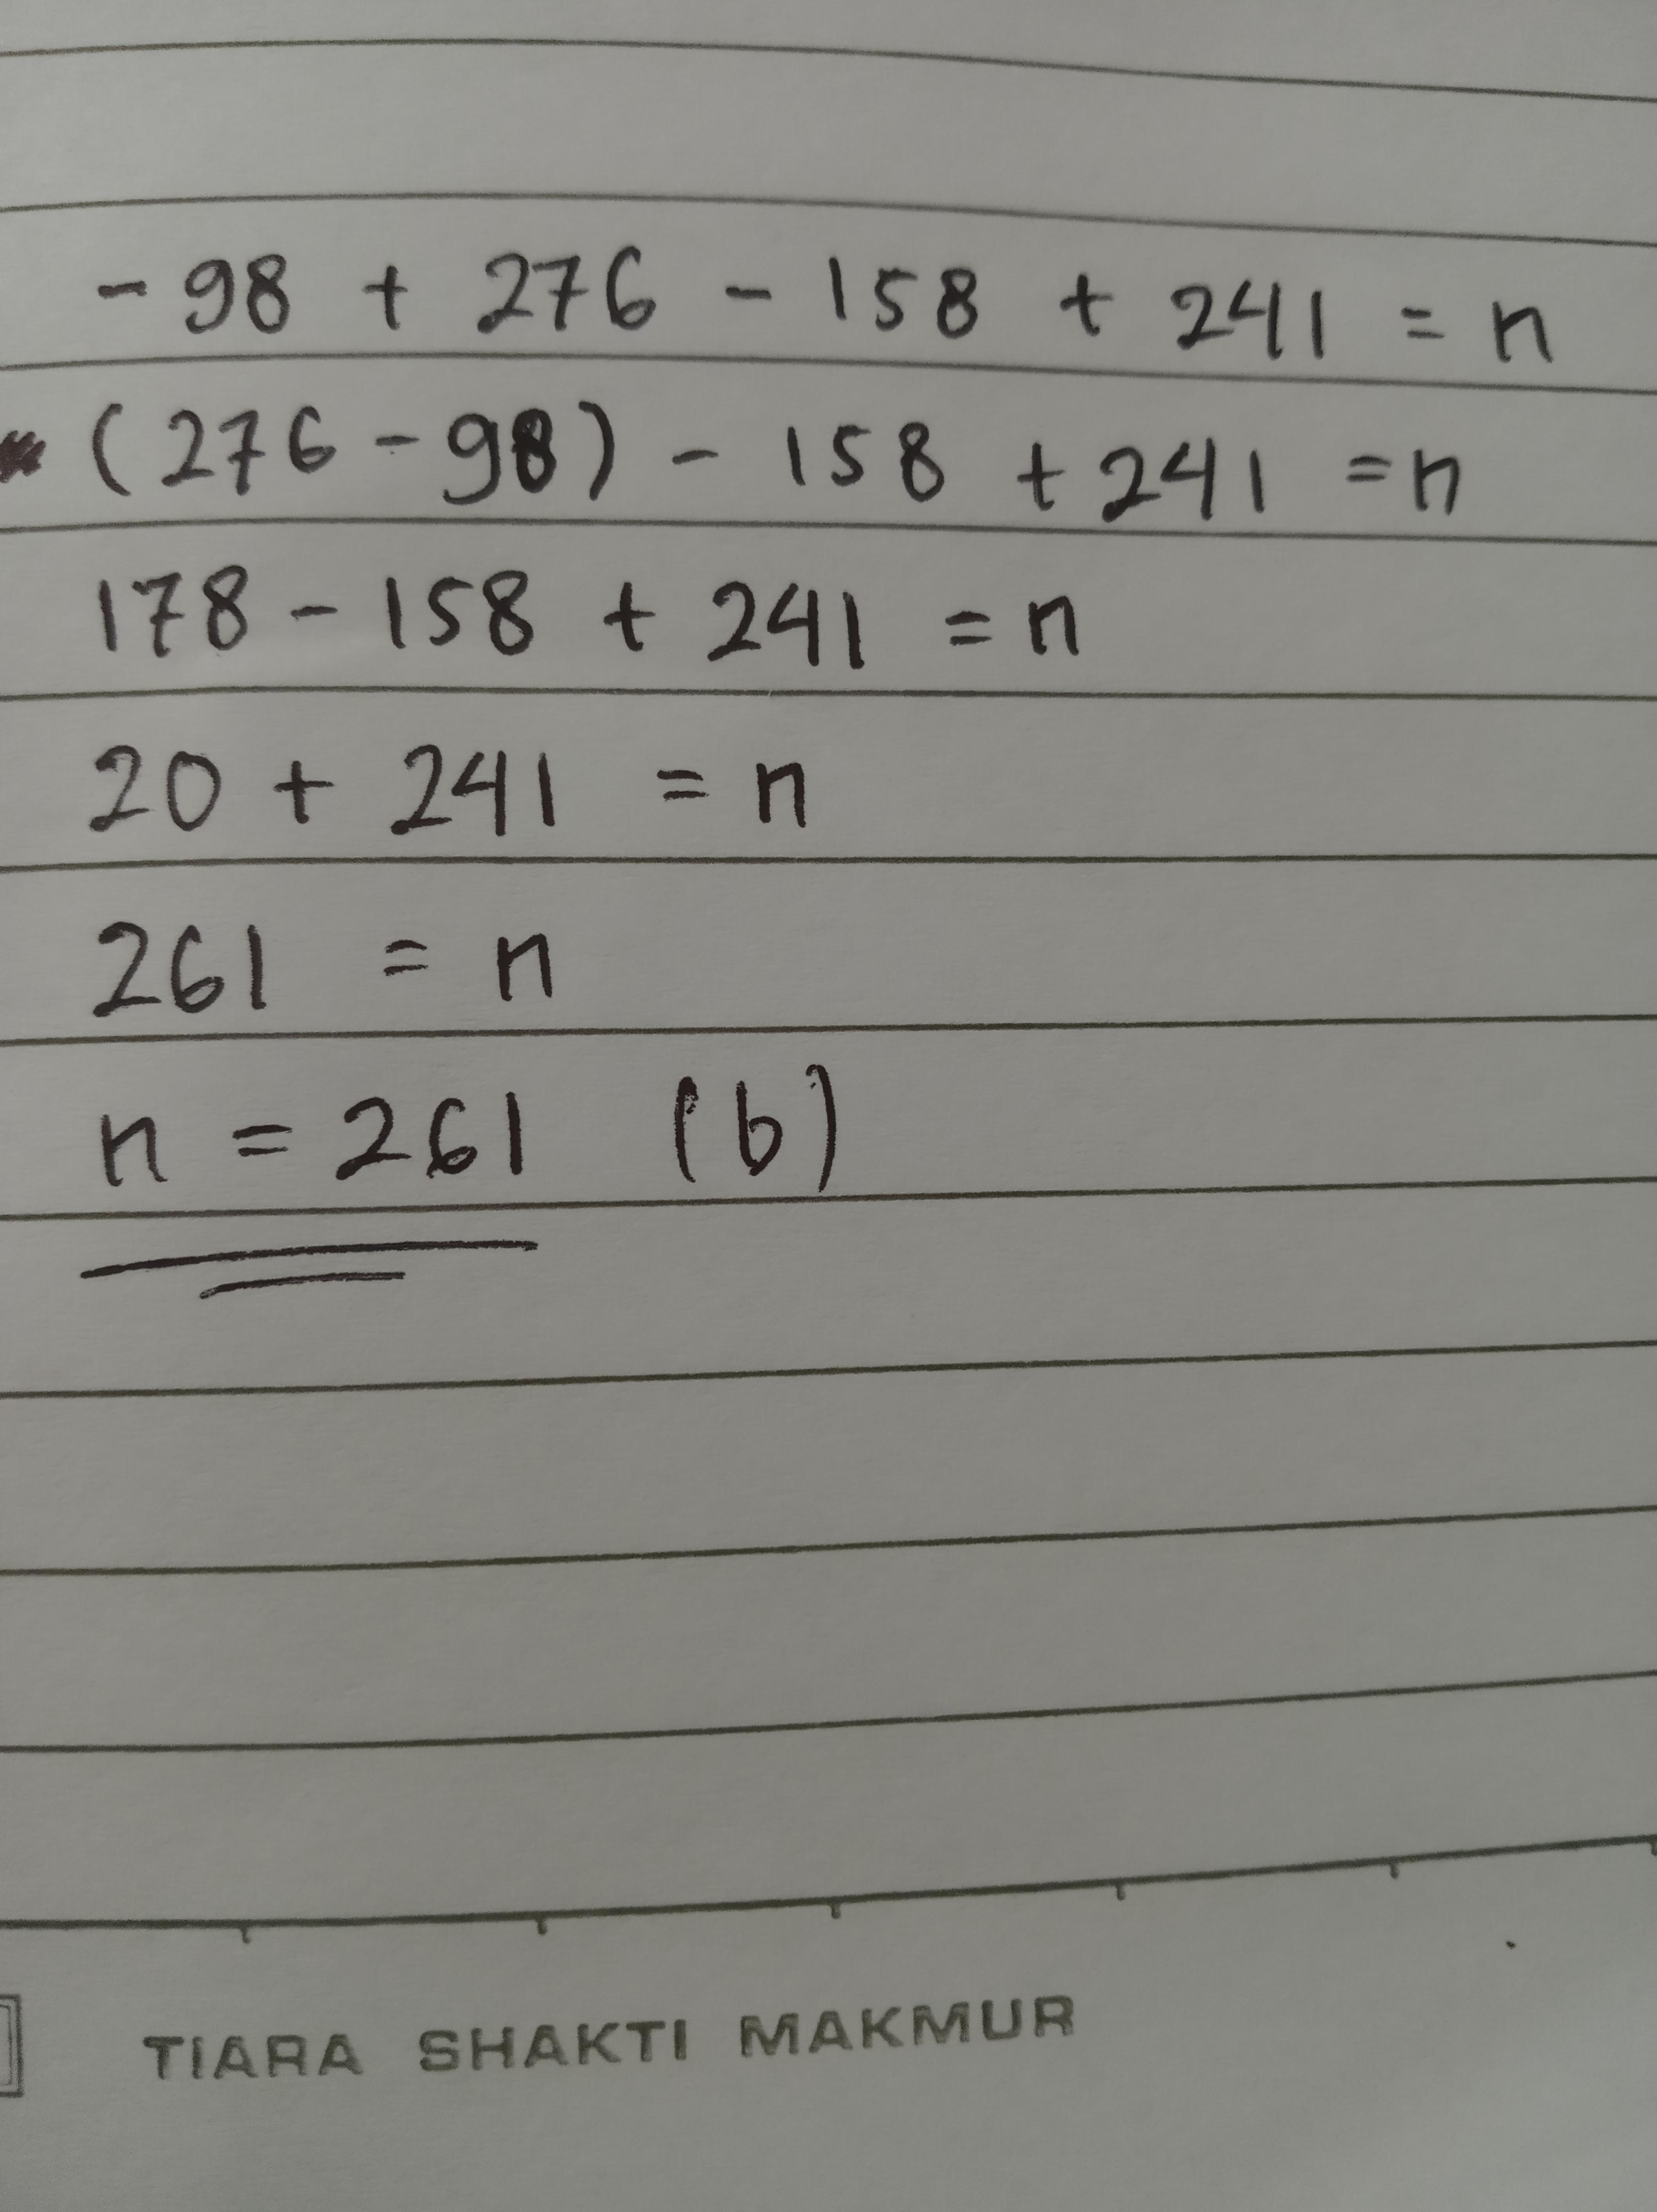 - 98 + 276 - 158 + 241 = n
(276 - 98) - 158 + 241 = n
178 - 158 + 241 = n
20 + 241 = n
261 = n
n = 261 (b)
TIARA SHAKTI MAKMUR